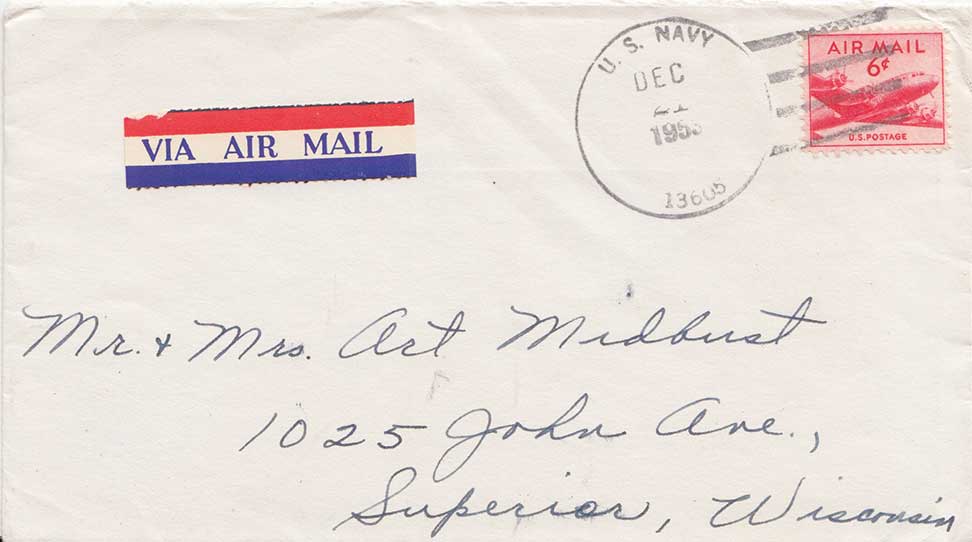 U. S. NAVY
DEC
21
1953
13605
AIR MAIL
6¢
U.S. POSTAGE
VIA AIR MAIL
Mr. + Mrs. Art Midbust
1025 John Ave.,
Superior, Wisconsin